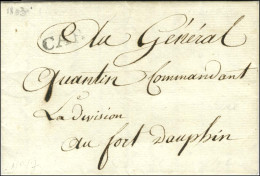 1803
CAP
Au Général
Quantin Commandant
La division
au fort Dauphin